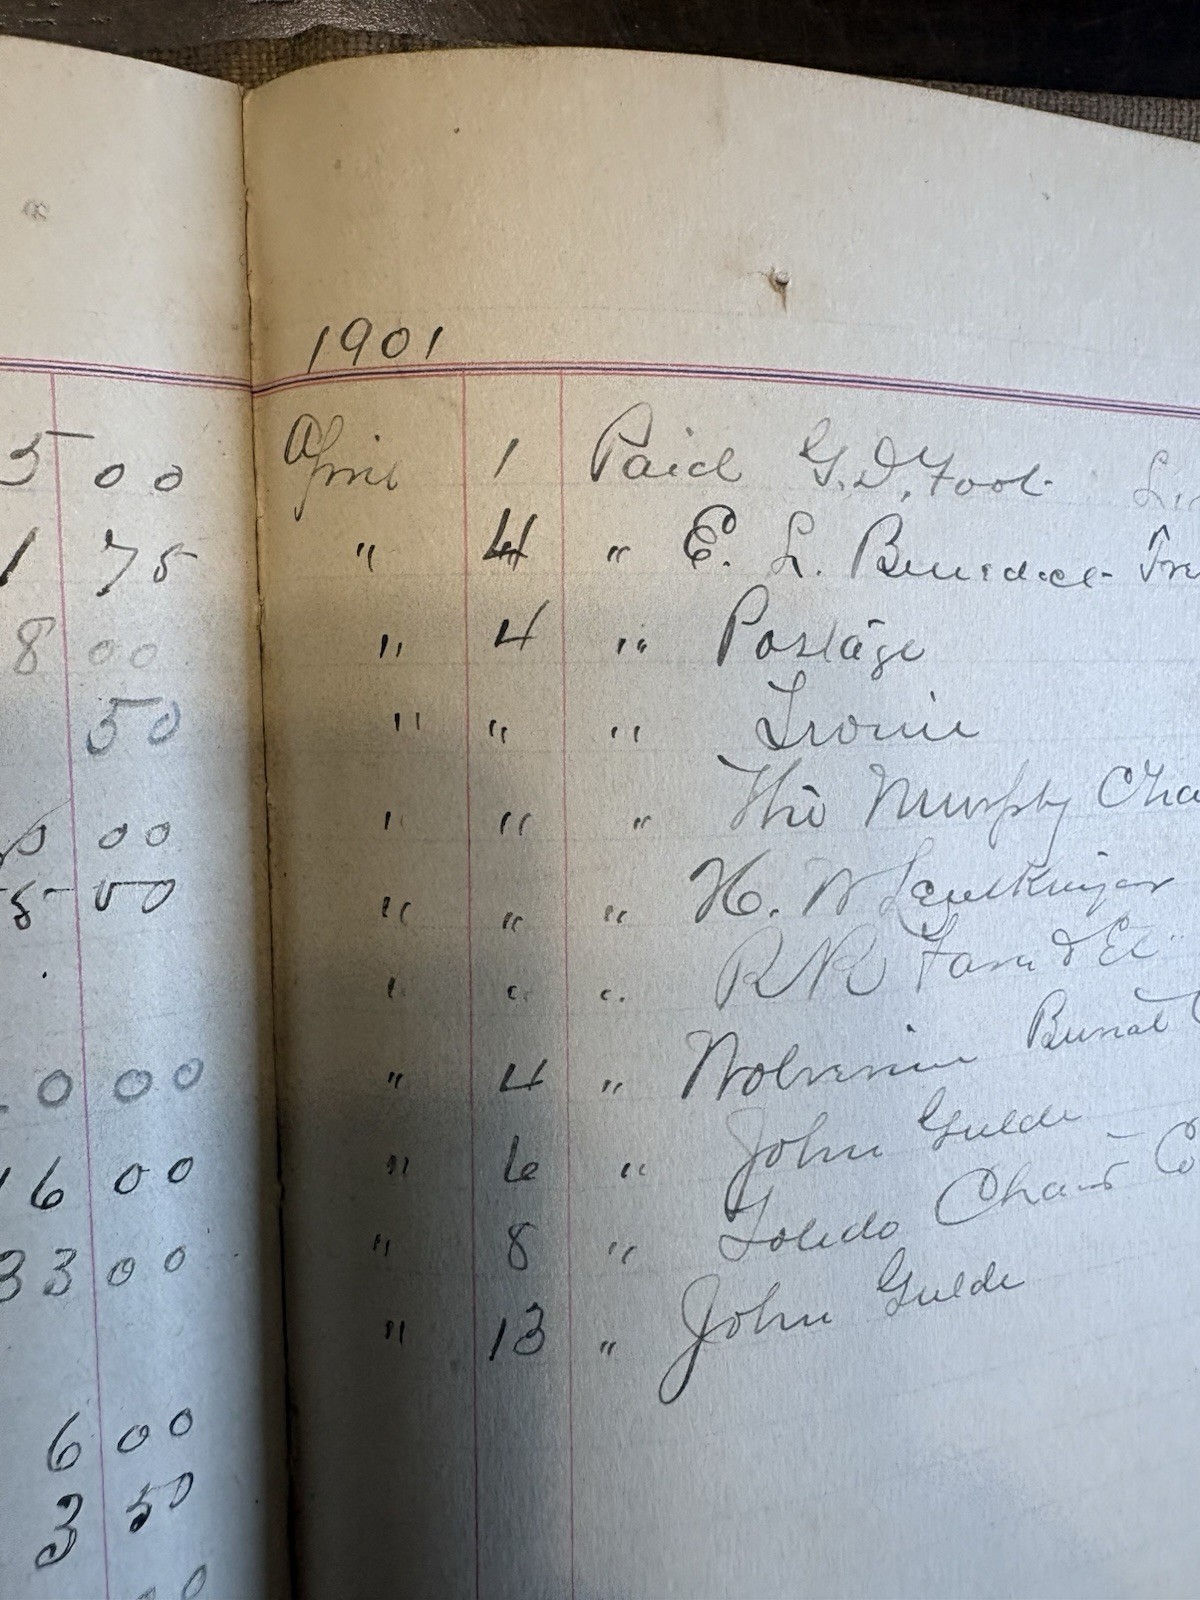 5 00
1 75
8 00
50
0 00
5 50
0 00
16 00
33 00
6 00
3 50
00
1901
April 1 Paid G. D. Foot
" 4 " E. L. Benedict
" 4 " Postage
" " "
" " " The Murphy Cha
" " " H. W.
" " " R R Fare &
" 4 " Wolverine
" 6 " John Gulde
" 8 " Toledo Chair Co
" 13 " John Gulde